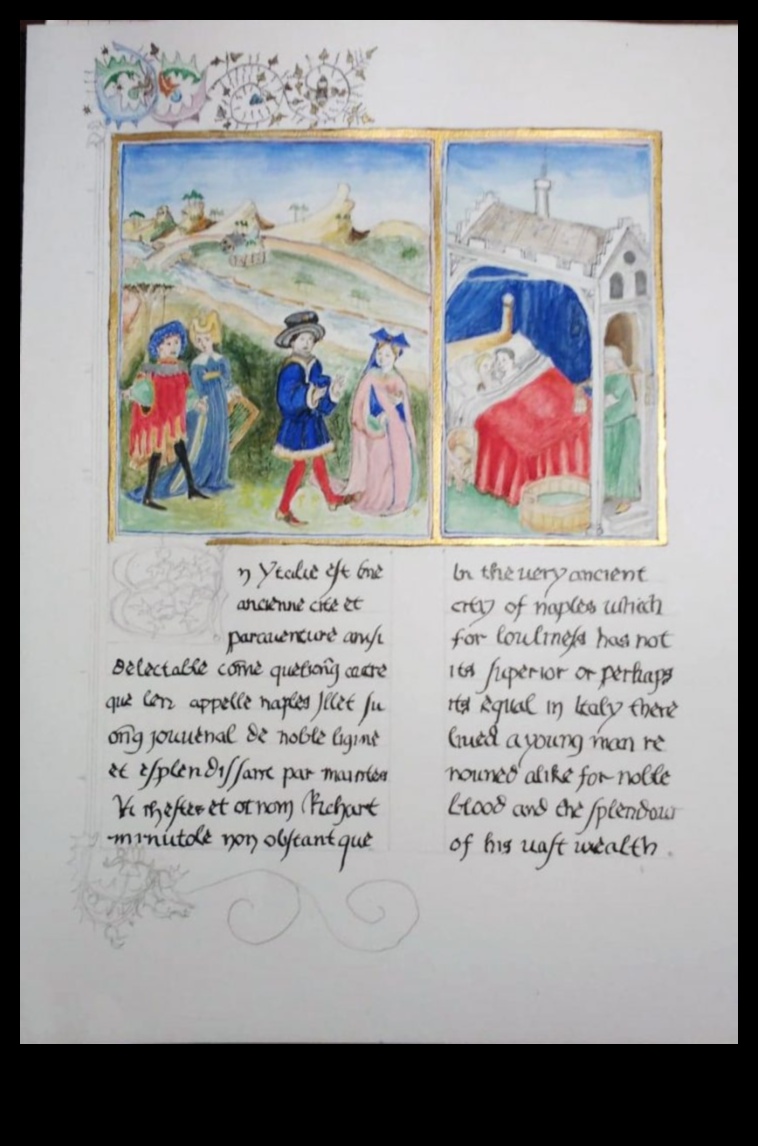 n Ytalie est une
ancienne cite et
paraventure ansi
delectable come
que len appelle naples Illet fu
ong jouvenal de noble ligine
et esplendissant par maintes
et ot nom Richart
minutole non obstant que
In the very ancient
city of naples which
for louliness has not
its superior or perhaps
its equal in Italy there
lived a young man re
nouned alike for noble
blood and the splendour
of his vast wealth.